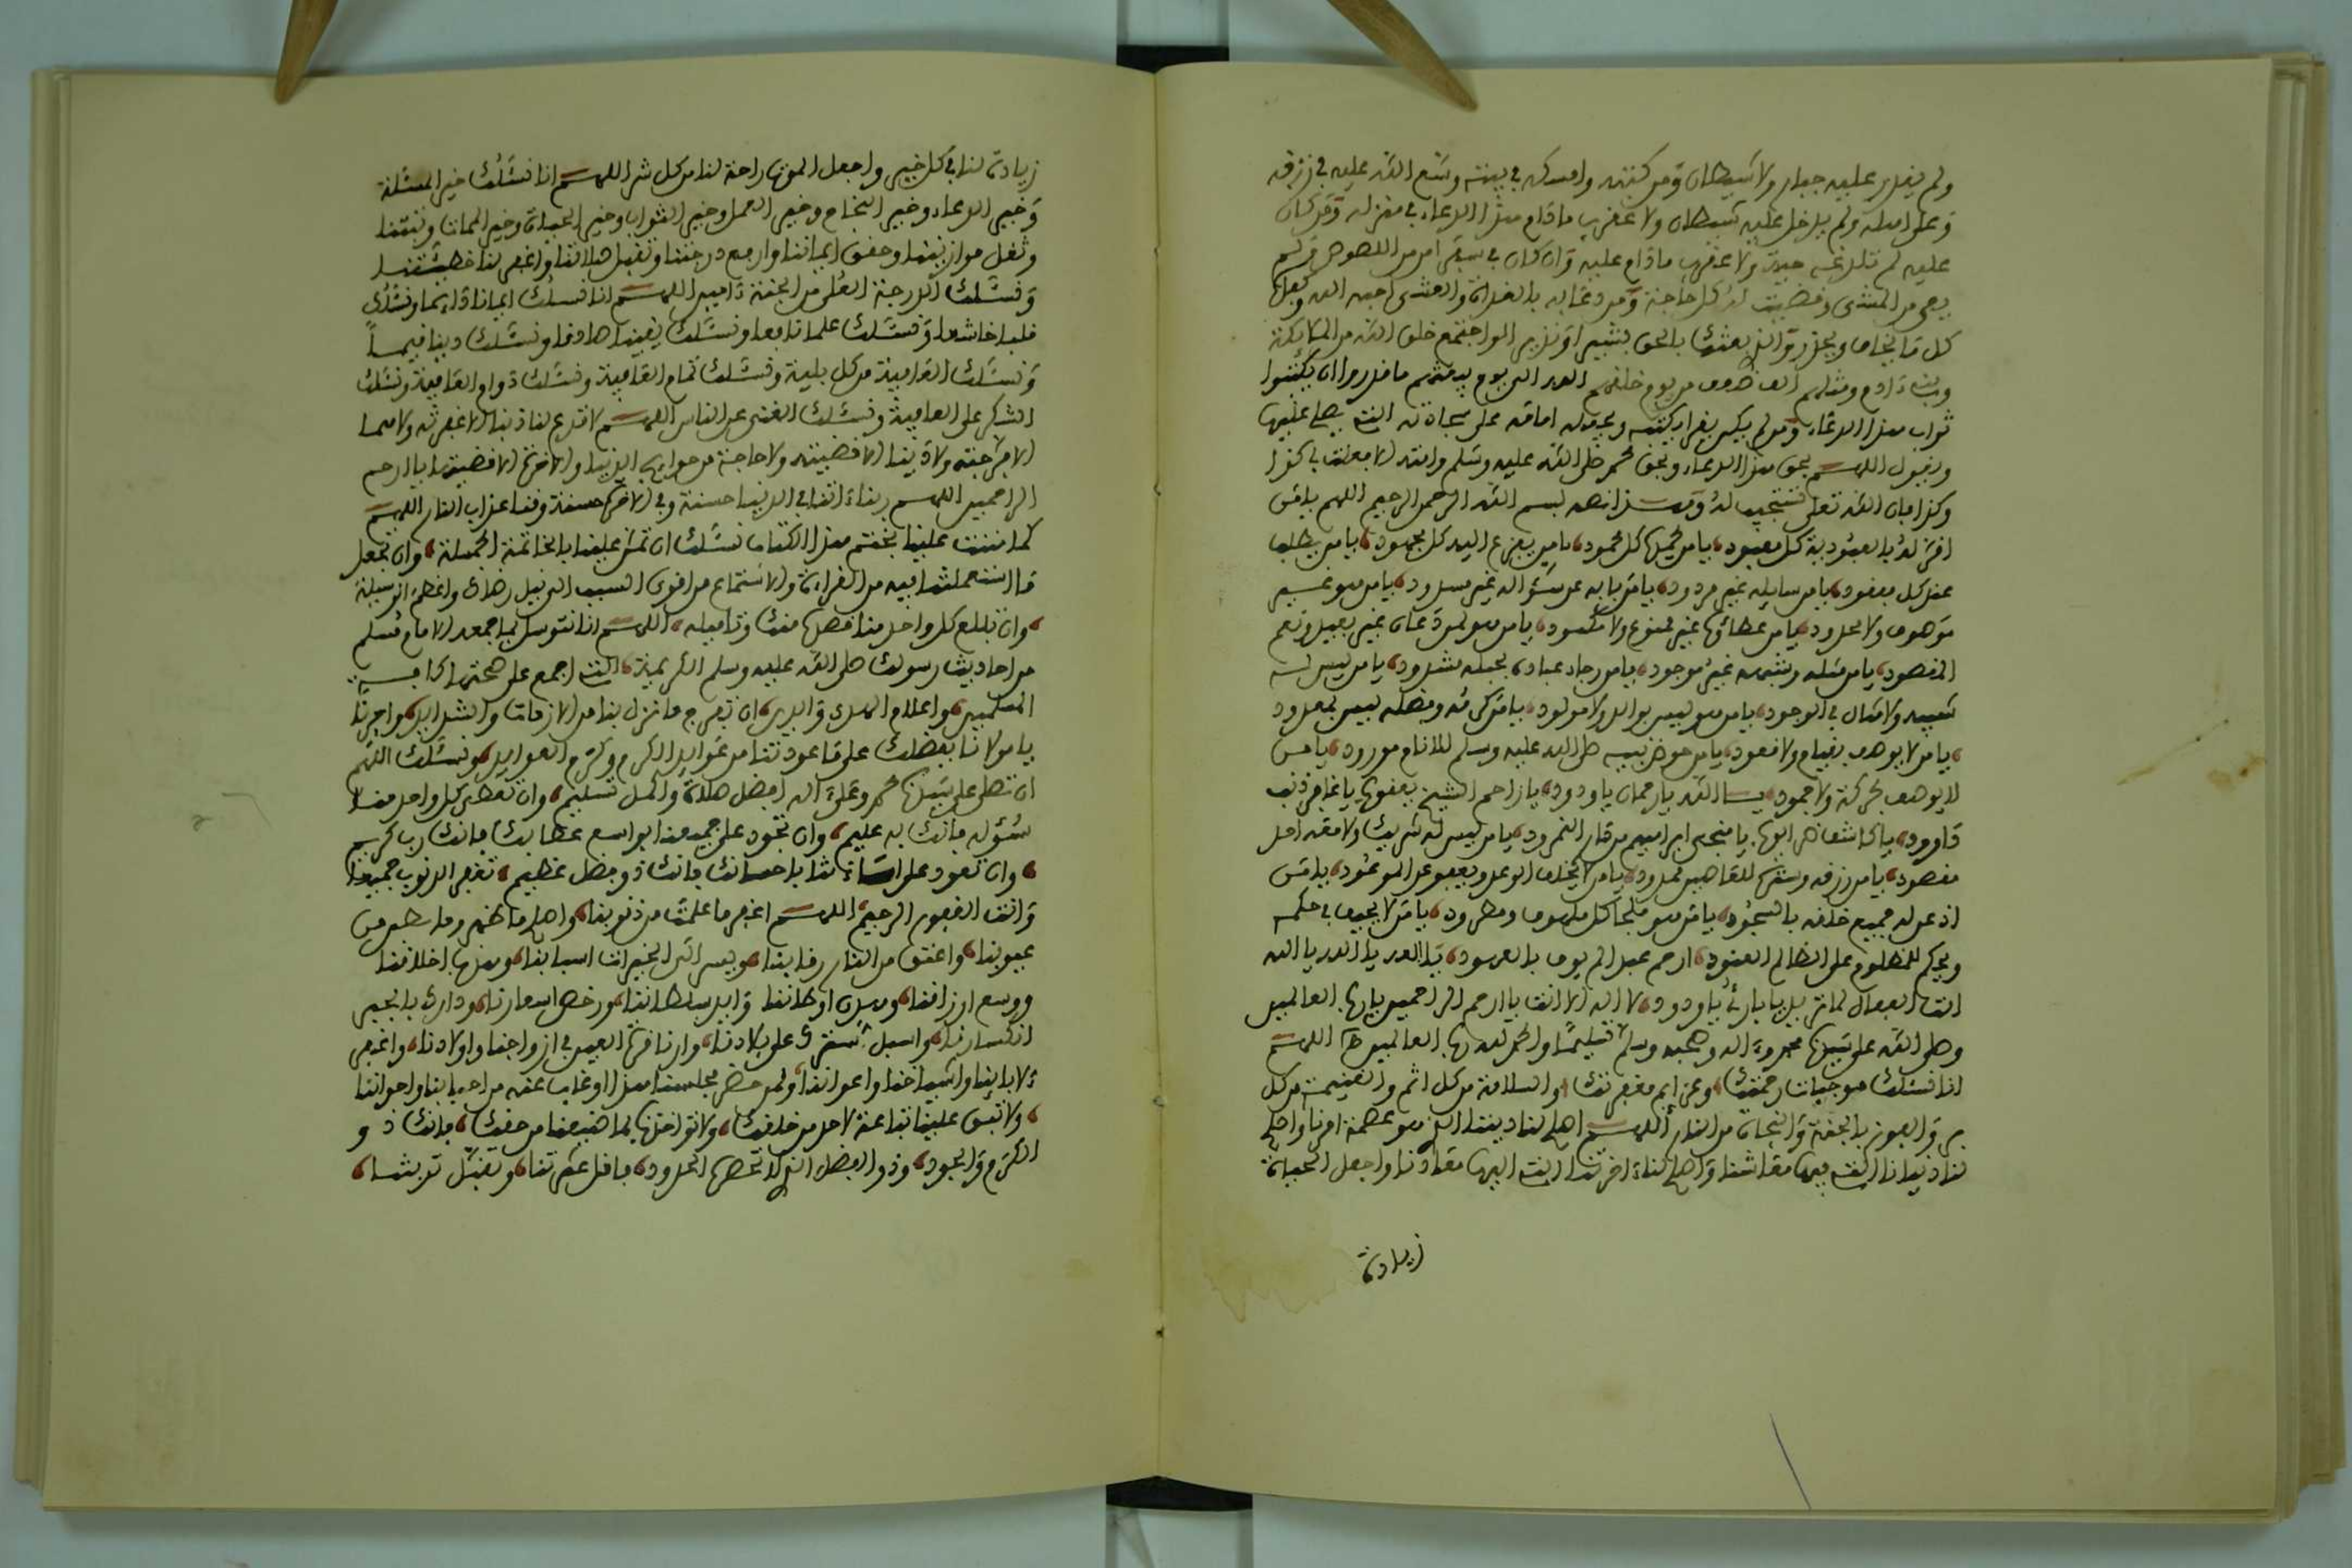 ولم يقدر عليه جبار ولا شيطان ومن كتبه وامسكه في بيته وسع الله عليه في رزقه
وعلى اهله ولم يدخل عليه شيطان ولا عقرب مادام هذا الدعاء في منزله ومن كان
عليه لم تلدغه حية ولا عقرب مادام عليه وان كان في سفر امن من اللصوص
كل حاجة ومن دعا به بالغداة والعشي احبه الله وكفاه
كل ما يخاف ويحذر والذي بعثك بالحق بشيرا ونذيرا لو اجتمع خلق الله من الملائكة
وبني ءادم ومثلهم الف ضعف من يوم خلقهم الله الى يوم يبعثهم ما قدروا ان يكتبوا
ثواب هذا الدعاء ومن لم يكن يقرا يكتبه ويجعله امامه على سجادته التي يصلي عليها
ويقول اللهم بحق هذا الدعاء وبحق محمد صلى الله عليه وسلم وامته الا فعلت بي كذا
وكذا فان الله تعلى يستجيب له بسم الله الرحمن الرحيم اللهم يا من
اقر له بالعبودية كل معبود يا من يحمده كل محمود يا من يفزع اليه كل مجهود يا من يطلب
عنده كل مفقود يا من سايله غير مردود يا من بابه عن سؤاله غير مسدود يا من هو غير
موصوف ولا محدود يا من عطاؤه غير ممنوع ولا منكود يا من هو لمن دعاه غير بعيد ونعم
المقصود يا من مثله وشبهه غير موجود يا من رجاء عباده بحبله مشدود يا من ليس له
شبيه ولا مثال في الوجود يا من هو ليس بوالد ولا مولود يا من كرمه وفضله ليس بمعدود
يا من لا يوصف بقيام ولا قعود يا من حوض نبيه صلى الله عليه وسلم للانام مورود يا من
لا يوصف بحركة ولا جمود يا الله يا رحمان يا ودود يا راحم الشيخ يعقوب يا غافر ذنب
داوود يا كاشف ضر ايوب يا منجي ابراهيم من نار النمرود يا من ليس له شريك ولا معه احد
مقصود يا من رزقه وستره للعاصين ممدود يا من لا يخلف الوعد ويعفو عن الموعود يا من
اذعن له جميع خلقه بالسجود يا من هو ملجا كل ملهوف ومطرود يا من لا يحيف في حكمه
ويحكم للمظلوم على الظالم العنود ارحم عبدا لم يوف بالعهود يا الله يا الله يا الله
انت الفعال لما تريد يا بارئ يا ودود لا اله الا انت يا ارحم الراحمين يا رب العالمين
وصلى الله على سيدنا محمد وءاله وصحبه وسلم تسليما والحمد لله رب العالمين اللهم
انا نسئلك موجبات رحمتك وعزايم مغفرتك والسلامة من كل اثم والغنيمة من كل
بر والفوز بالجنة والنجاة من النار اللهم اصلح لنا ديننا الذي هو عصمة امرنا واصلح
لنا دنيانا التي فيها معاشنا واصلح لنا ءاخرتنا التي اليها معادنا واجعل الحياة
زيادة
زيادة لنا في كل خير واجعل الموت راحة لنا من كل شر اللهم انا نسئلك خير المسئلة
وخير الدعاء وخير النجاح وخير العمل وخير الثواب وخير الحياة وخير الممات وثبتنا
وثقل موازيننا وحقق ايماننا وارفع درجتنا وتقبل صلاتنا واغفر لنا خطيئتنا
ونسئلك الدرجة العلى من الجنة ءامين اللهم انا نسئلك ايمانا دايما ونسئلك
قلبا خاشعا ونسئلك علما نافعا ونسئلك يقينا صادقا ونسئلك دينا قيما
ونسئلك العافية من كل بلية ونسئلك تمام العافية ونسئلك دوام العافية ونسئلك
الشكر على العافية ونسئلك الغنى عن الناس اللهم لا تدع لنا ذنبا الا غفرته ولا هما
الا فرجته ولا دينا الا قضيته ولا حاجة من حوايج الدنيا والاخرة الا قضيتها يا ارحم
الراحمين اللهم ربنا ءاتنا في الدنيا حسنة وفي الاخرة حسنة وقنا عذاب النار اللهم
كما مننت علينا بختم هذا الكتاب نسئلك ان تمن علينا بالخاتمة الجميلة وان تجعل
ما استعملتنا فيه من القراءة والاستماع من اقوى السبب الى نيل رضاك واعظم الوسيلة
وان تبلغ كل واحد منا فصده منك وتاميله اللهم انا نتوسل بما جمعه الامام مسلم
من احاديث رسولك صلى الله عليه وسلم الكريمة التي اجمع على صحتها كافة
المسلمين واعلام الهدى والدين ان تفرج ما نزل بنا من الازمات والشدايد واجرنا
يا مولانا بفضلك على ما عودتنا من عوايد الكرم وكرم العوايد ونسئلك اللهم
ان تصلي على سيدنا محمد وعلى ءاله افضل صلاة واكمل تسليم وان تعطي كل واحد منا
سؤله فانك به عليم وان تجود على جميعنا بواسع عطايك فانك رب كريم
وان تعود على اساءتنا باحسانك فانك ذو فضل عظيم تغفر الذنوب جميعا
وانت الغفور الرحيم اللهم اغفر ما علمت من ذنوبنا واصلح ما ظهر وما بطن من
عيوبنا واعتق من النار رقابنا ويسر الى الخيرات اسبابنا وهذب اخلاقنا
ووسع ارزاقنا وهدن اوطاننا وايد سلطاننا ورخص اسعارنا ودارك بالجبر
انكسارنا واسبل سترك على بلادنا وارنا قرة العين في ازواجنا واولادنا واغفر
لابائنا واشياخنا واعواننا ولمن حضر مجلسنا هذا او غاب عنه من احبابنا واخواننا
ولا تبق علينا تباعة لاحد من خلقك ولا تواخذنا بما ضيعنا من حقك فانك ذو
الكرم والجود وذو الفضل الذي لا تحصره الحدود فاقل عثرتنا وتقبل توبتنا